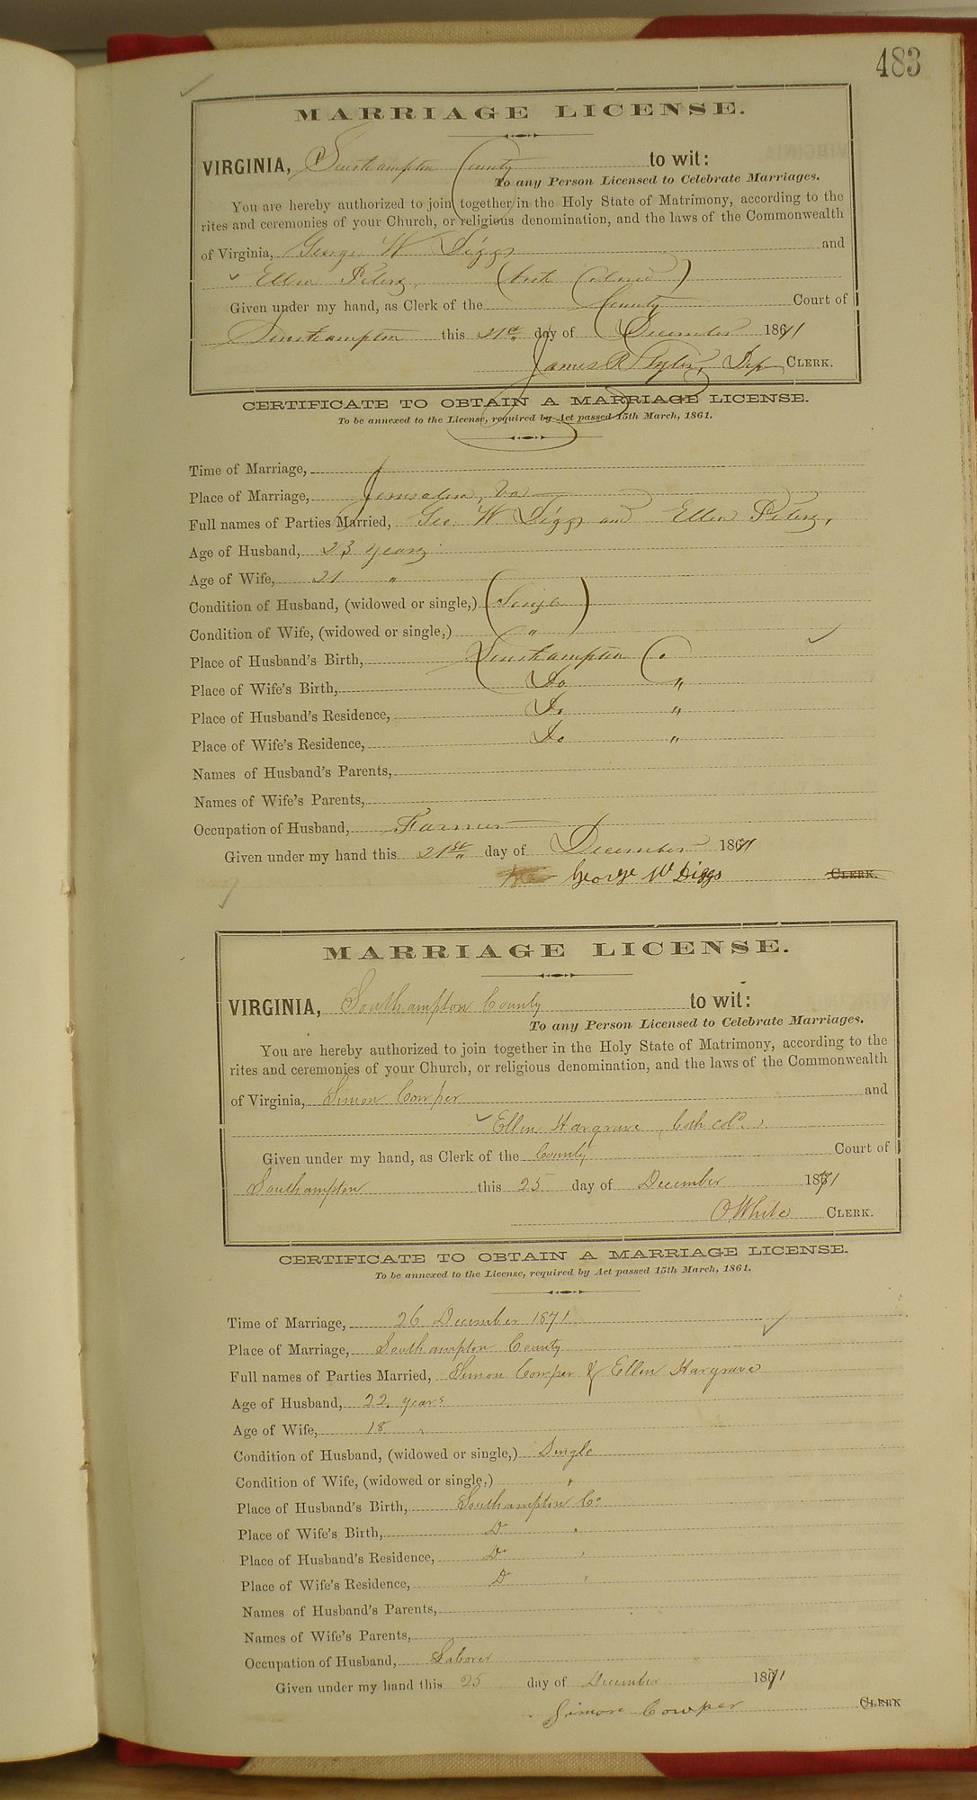 483
MARRIAGE LICENSE.
VIRGINIA, Southampton County to wit:
To any Person Licensed to Celebrate Marriages.
You are hereby authorized to join together in the Holy State of Matrimony, according to the
rites and ceremonies of your Church, or religious denomination, and the laws of the Commonwealth
of Virginia, George W Diggs and
Ellen Peters, (both Colored)
Given under my hand, as Clerk of the County Court of
Southampton this 21st day of December 1871
James R Dep CLERK.
CERTIFICATE TO OBTAIN A MARRIAGE LICENSE.
To be annexed to the License, required by Act passed 15th March, 1861.
Time of Marriage,
Place of Marriage, Jerusalem, Va
Full names of Parties Married, Geo. W Diggs and Ellen Peters,
Age of Husband, 23 years
Age of Wife, 21 "
Condition of Husband, (widowed or single,) Single
Condition of Wife, (widowed or single,) "
Place of Husband's Birth, Southampton Co.
Place of Wife's Birth, Do "
Place of Husband's Residence, Do "
Place of Wife's Residence, Do "
Names of Husband's Parents,
Names of Wife's Parents,
Occupation of Husband, Farmer
Given under my hand this 21st day of December 1871
George W Diggs CLERK.
MARRIAGE LICENSE.
VIRGINIA, Southampton County to wit:
To any Person Licensed to Celebrate Marriages.
You are hereby authorized to join together in the Holy State of Matrimony, according to the
rites and ceremonies of your Church, or religious denomination, and the laws of the Commonwealth
of Virginia, Simon Cowper and
Ellen Hargrave, both cold.
Given under my hand, as Clerk of the County Court of
Southampton this 25 day of December 1871
O White CLERK.
CERTIFICATE TO OBTAIN A MARRIAGE LICENSE.
To be annexed to the License, required by Act passed 15th March, 1861.
Time of Marriage, 26 December 1871
Place of Marriage, Southampton County
Full names of Parties Married, Simon Cowper & Ellen Hargrave
Age of Husband, 22 years
Age of Wife, 18 "
Condition of Husband, (widowed or single,) Single
Condition of Wife, (widowed or single,) "
Place of Husband's Birth, Southampton Co
Place of Wife's Birth, Do "
Place of Husband's Residence, Do "
Place of Wife's Residence, Do "
Names of Husband's Parents,
Names of Wife's Parents,
Occupation of Husband, Laborer
Given under my hand this 25 day of December 1871
Simon Cowper CLERK